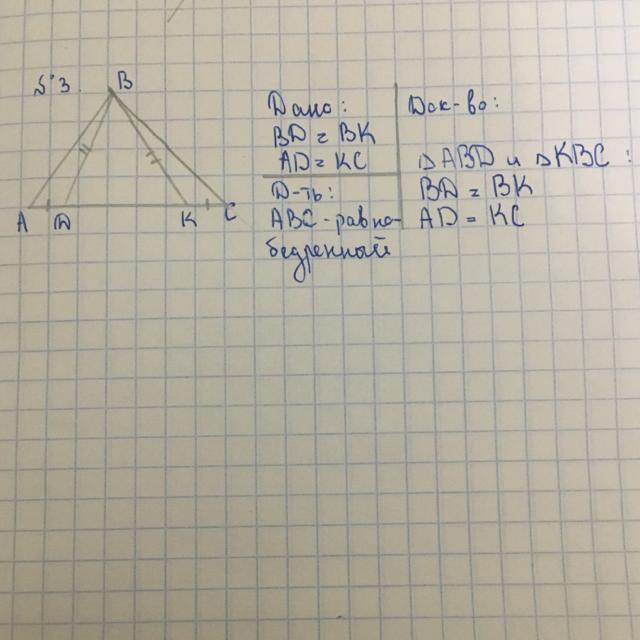 №3.
B
A D K C
Дано:
BD = BK
AD = KC
Д-ть:
ABC - равно-
бедренный
Док-во:
△ABD и △KBC:
BD = BK
AD = KC